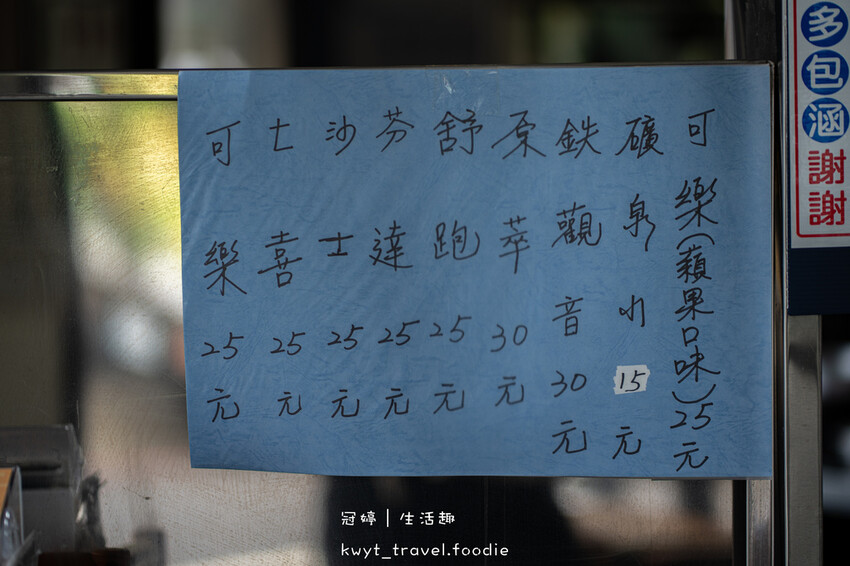 可樂(蘋果口味)25元
礦泉水15元
鉄觀音30元
原萃30元
舒跑25元
芬達25元
沙士25元
七喜25元
可樂25元
多包涵謝謝
冠婷｜生活趣
kwyt_travel.foodie